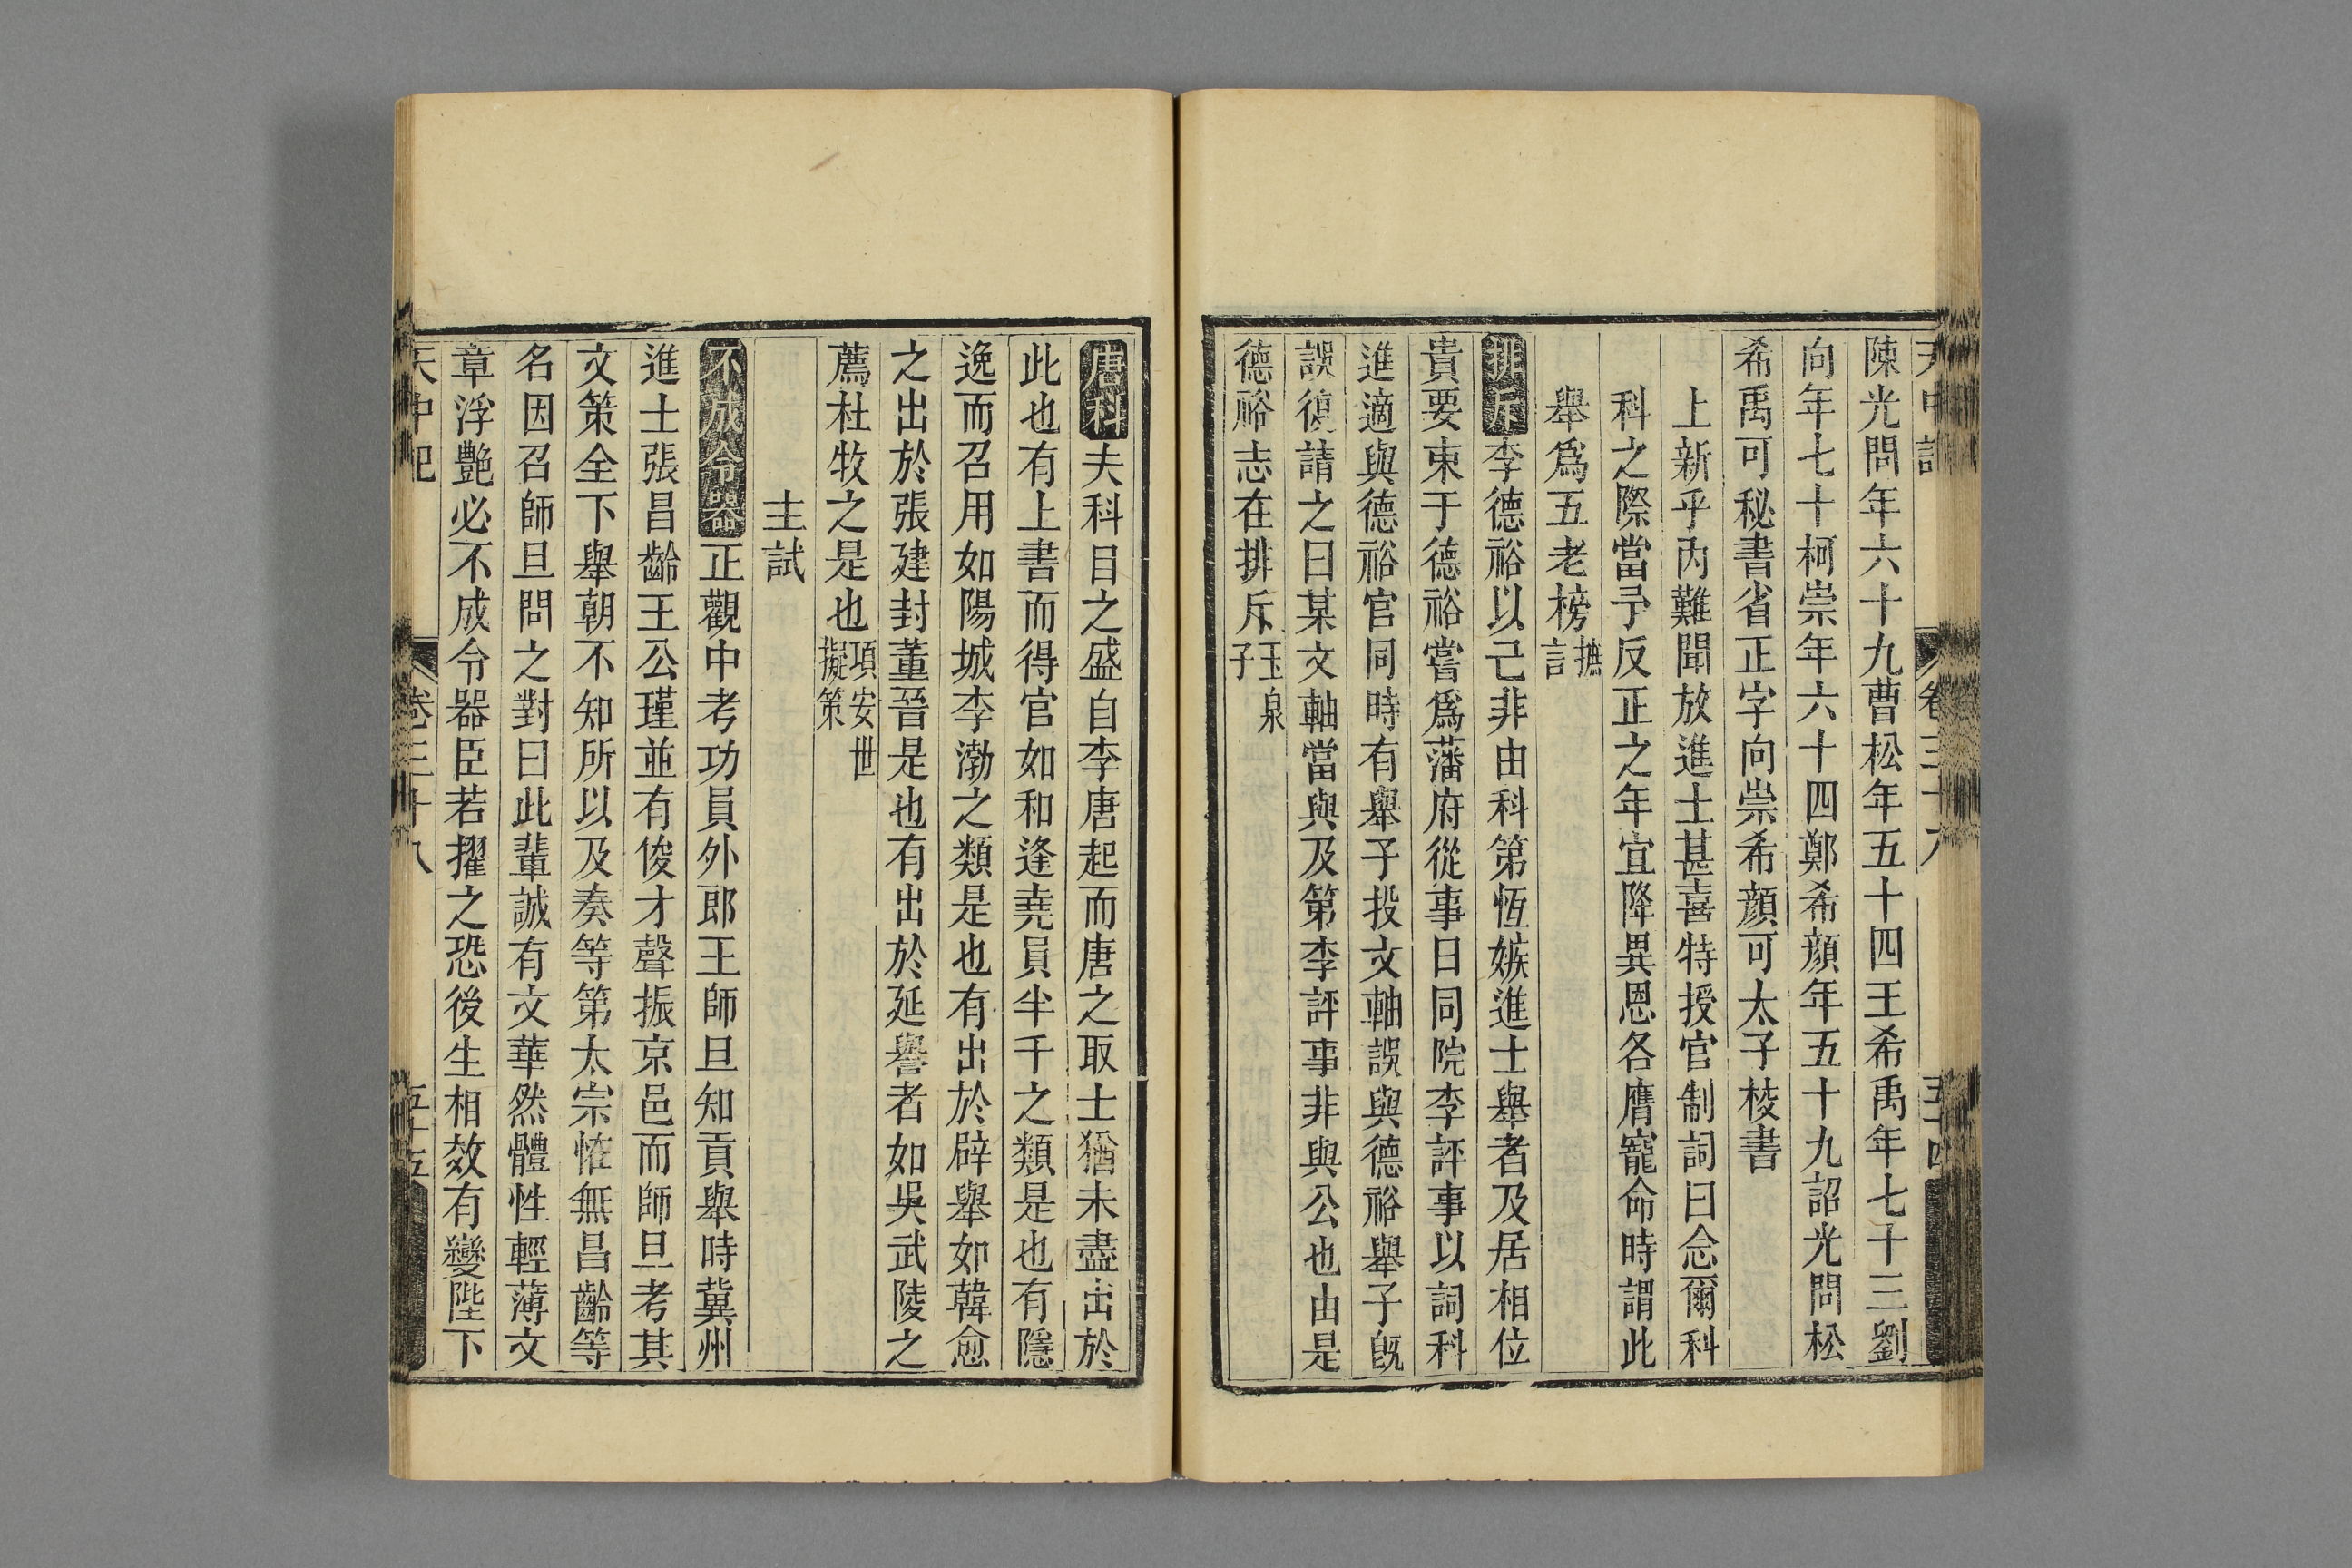 陳光問年六十九曹松年五十四王希禹年七十三劉
向年七十柯崇年六十四鄭希顔年五十九詔光問松
希禹可秘書省正字向崇希顔可太子校書
上新乎內難聞放進士甚喜特授官制詞曰念爾科
科之際當予反正之年宜降異恩各膺寵命時謂此
舉爲五老榜摭言
排斥李德裕以己非由科第恆嫉進士舉者及居相位
貴要束于德裕嘗爲藩府從事日同院李評事以詞科
進適與德裕官同時有舉子投文軸誤與德裕舉子旣
誤復請之曰某文軸當與及第李評事非與公也由是
德裕志在排斥玉泉子
唐科夫科目之盛自李唐起而唐之取士猶未盡出於
此也有上書而得官如和逢堯員半千之類是也有隱
逸而召用如陽城李渤之類是也有出於辟舉如韓愈
之出於張建封董晉是也有出於延譽者如吳武陵之
薦杜牧之是也項安世擬策
主試
不成令器正觀中考功員外郎王師旦知貢舉時冀州
進士張昌齡王公瑾並有俊才聲振京邑而師旦考其
文策全下舉朝不知所以及奏等第太宗恠無昌齡等
名因召師旦問之對曰此輩誠有文華然體性輕薄文
章浮艷必不成令器臣若擢之恐後生相效有變陛下
天中記 卷三十八 五十五